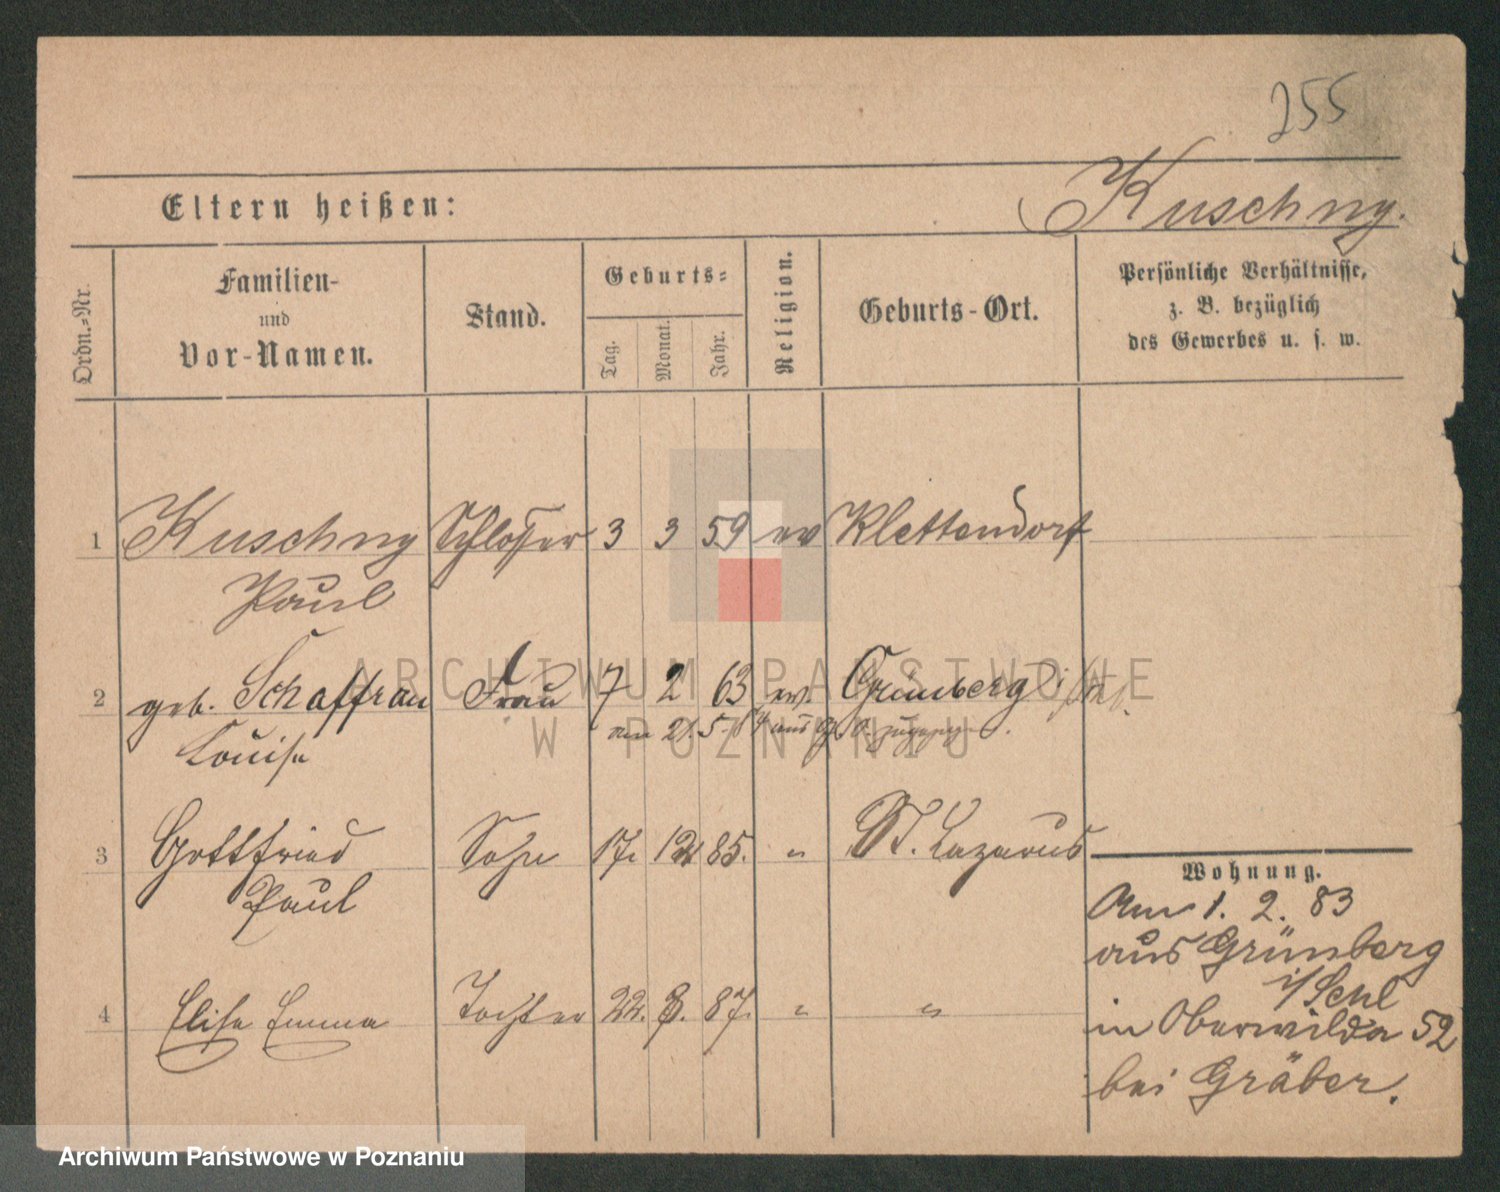 255
Eltern heißen:
Kuschny.
Ordn.-Nr.
Familien-
und
Vor-Namen.
Stand.
Geburts-
Tag.
Monat.
Jahr.
Religion.
Geburts-Ort.
Persönliche Verhältnisse,
z. B. bezüglich
des Gewerbes u. s. w.
1 Kuschny Schlosser 3 3 59 ev Klettendorf
Paul
2 geb. Schaffran Frau 7 2 63 ev. Grünberg
am 21. 5. 84 aus
Louise
3 Gottfried Sohn 17. 12 85. " St. Lazarus
Paul
4 Elise Emma Tochter 22. 8. 87. " "
Wohnung.
Am 1. 2. 83
aus Grünberg
i/Schl
in Oberwilda 52
bei Gräber.
ARCHIWUM PAŃSTWOWE
W POZNANIU
Archiwum Państwowe w Poznaniu